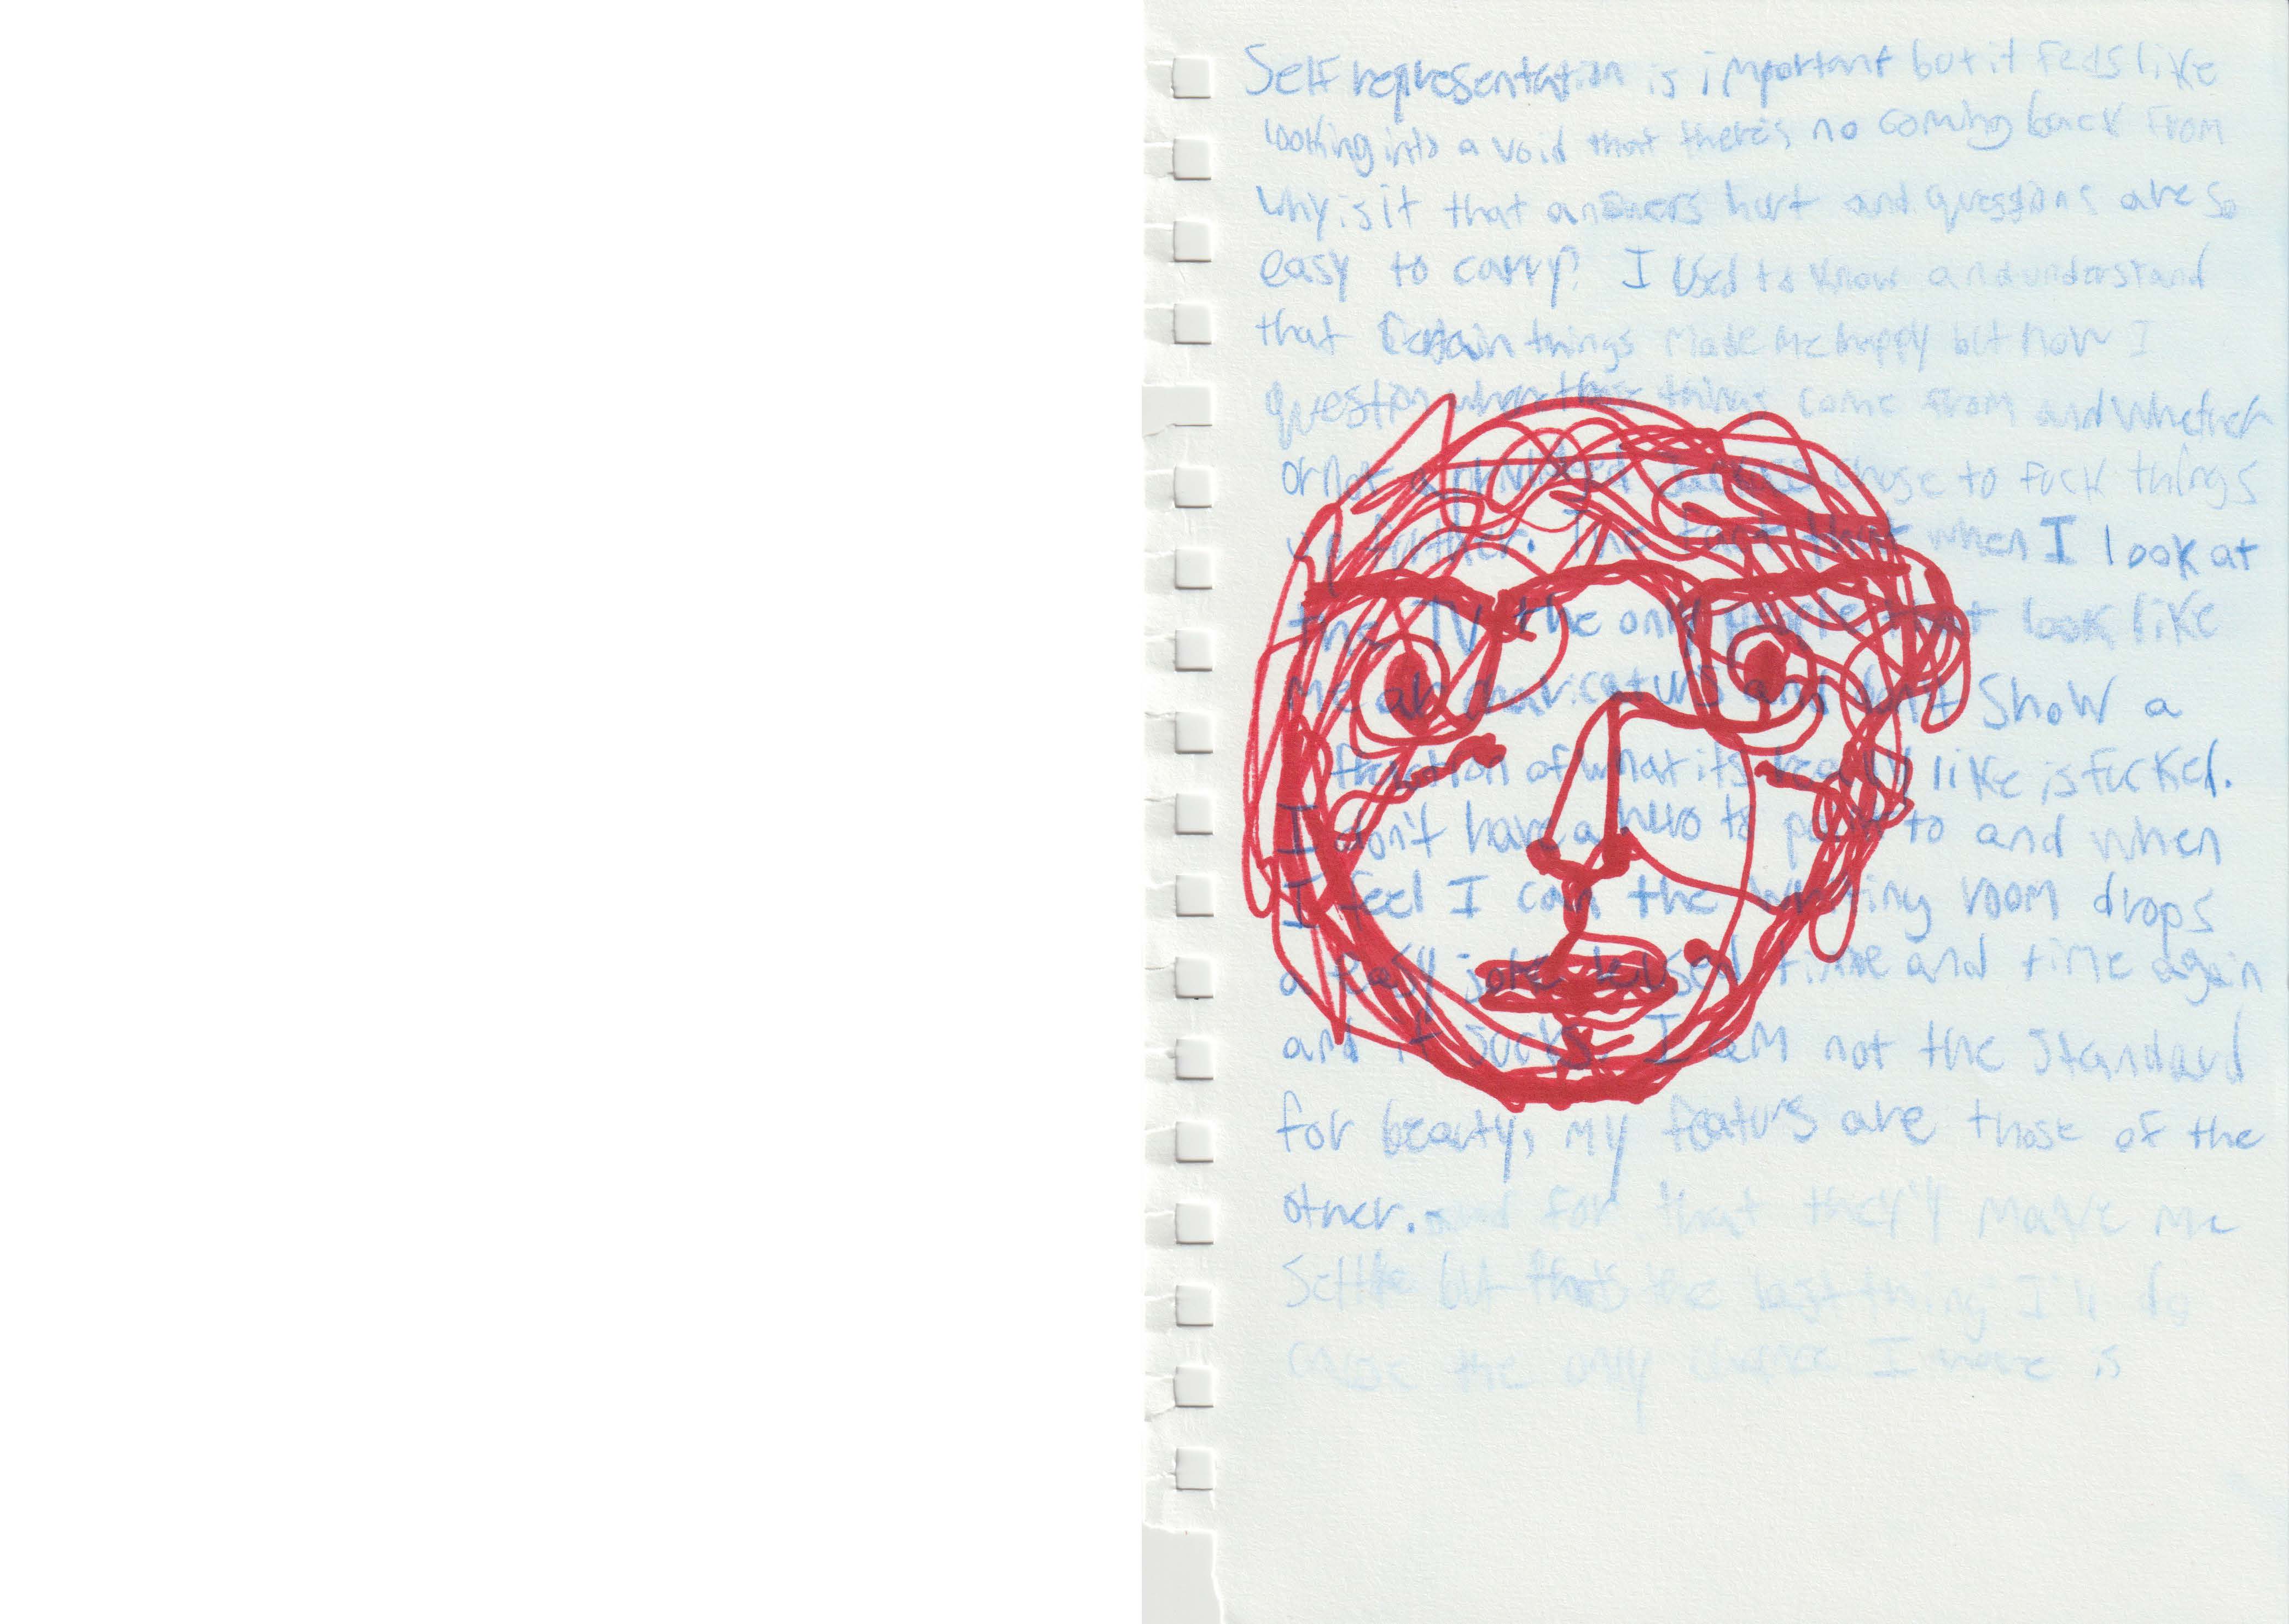 Self representation is important but it feels like
looking into a void that there's no coming back from
why is it that answers hurt and questions are so
easy to carry? I used to know and understand
that certain things made me happy but now I
question where these things come from and whether
or not a chose to fuck things
up further. The fact that when I look at
the TV the only people that look like
me ar caricaturs and don't show a
fraction of what its really like is fucked.
I don't have a hero to point to and when
I feel I can the writing room drops
a easy joke reused time and time again
and it sucks. I am not the standard
for beauty, my featurs are those of the
other. and for that they'll make me
settle but that's the last thing I'll do
cause the only chance I have is